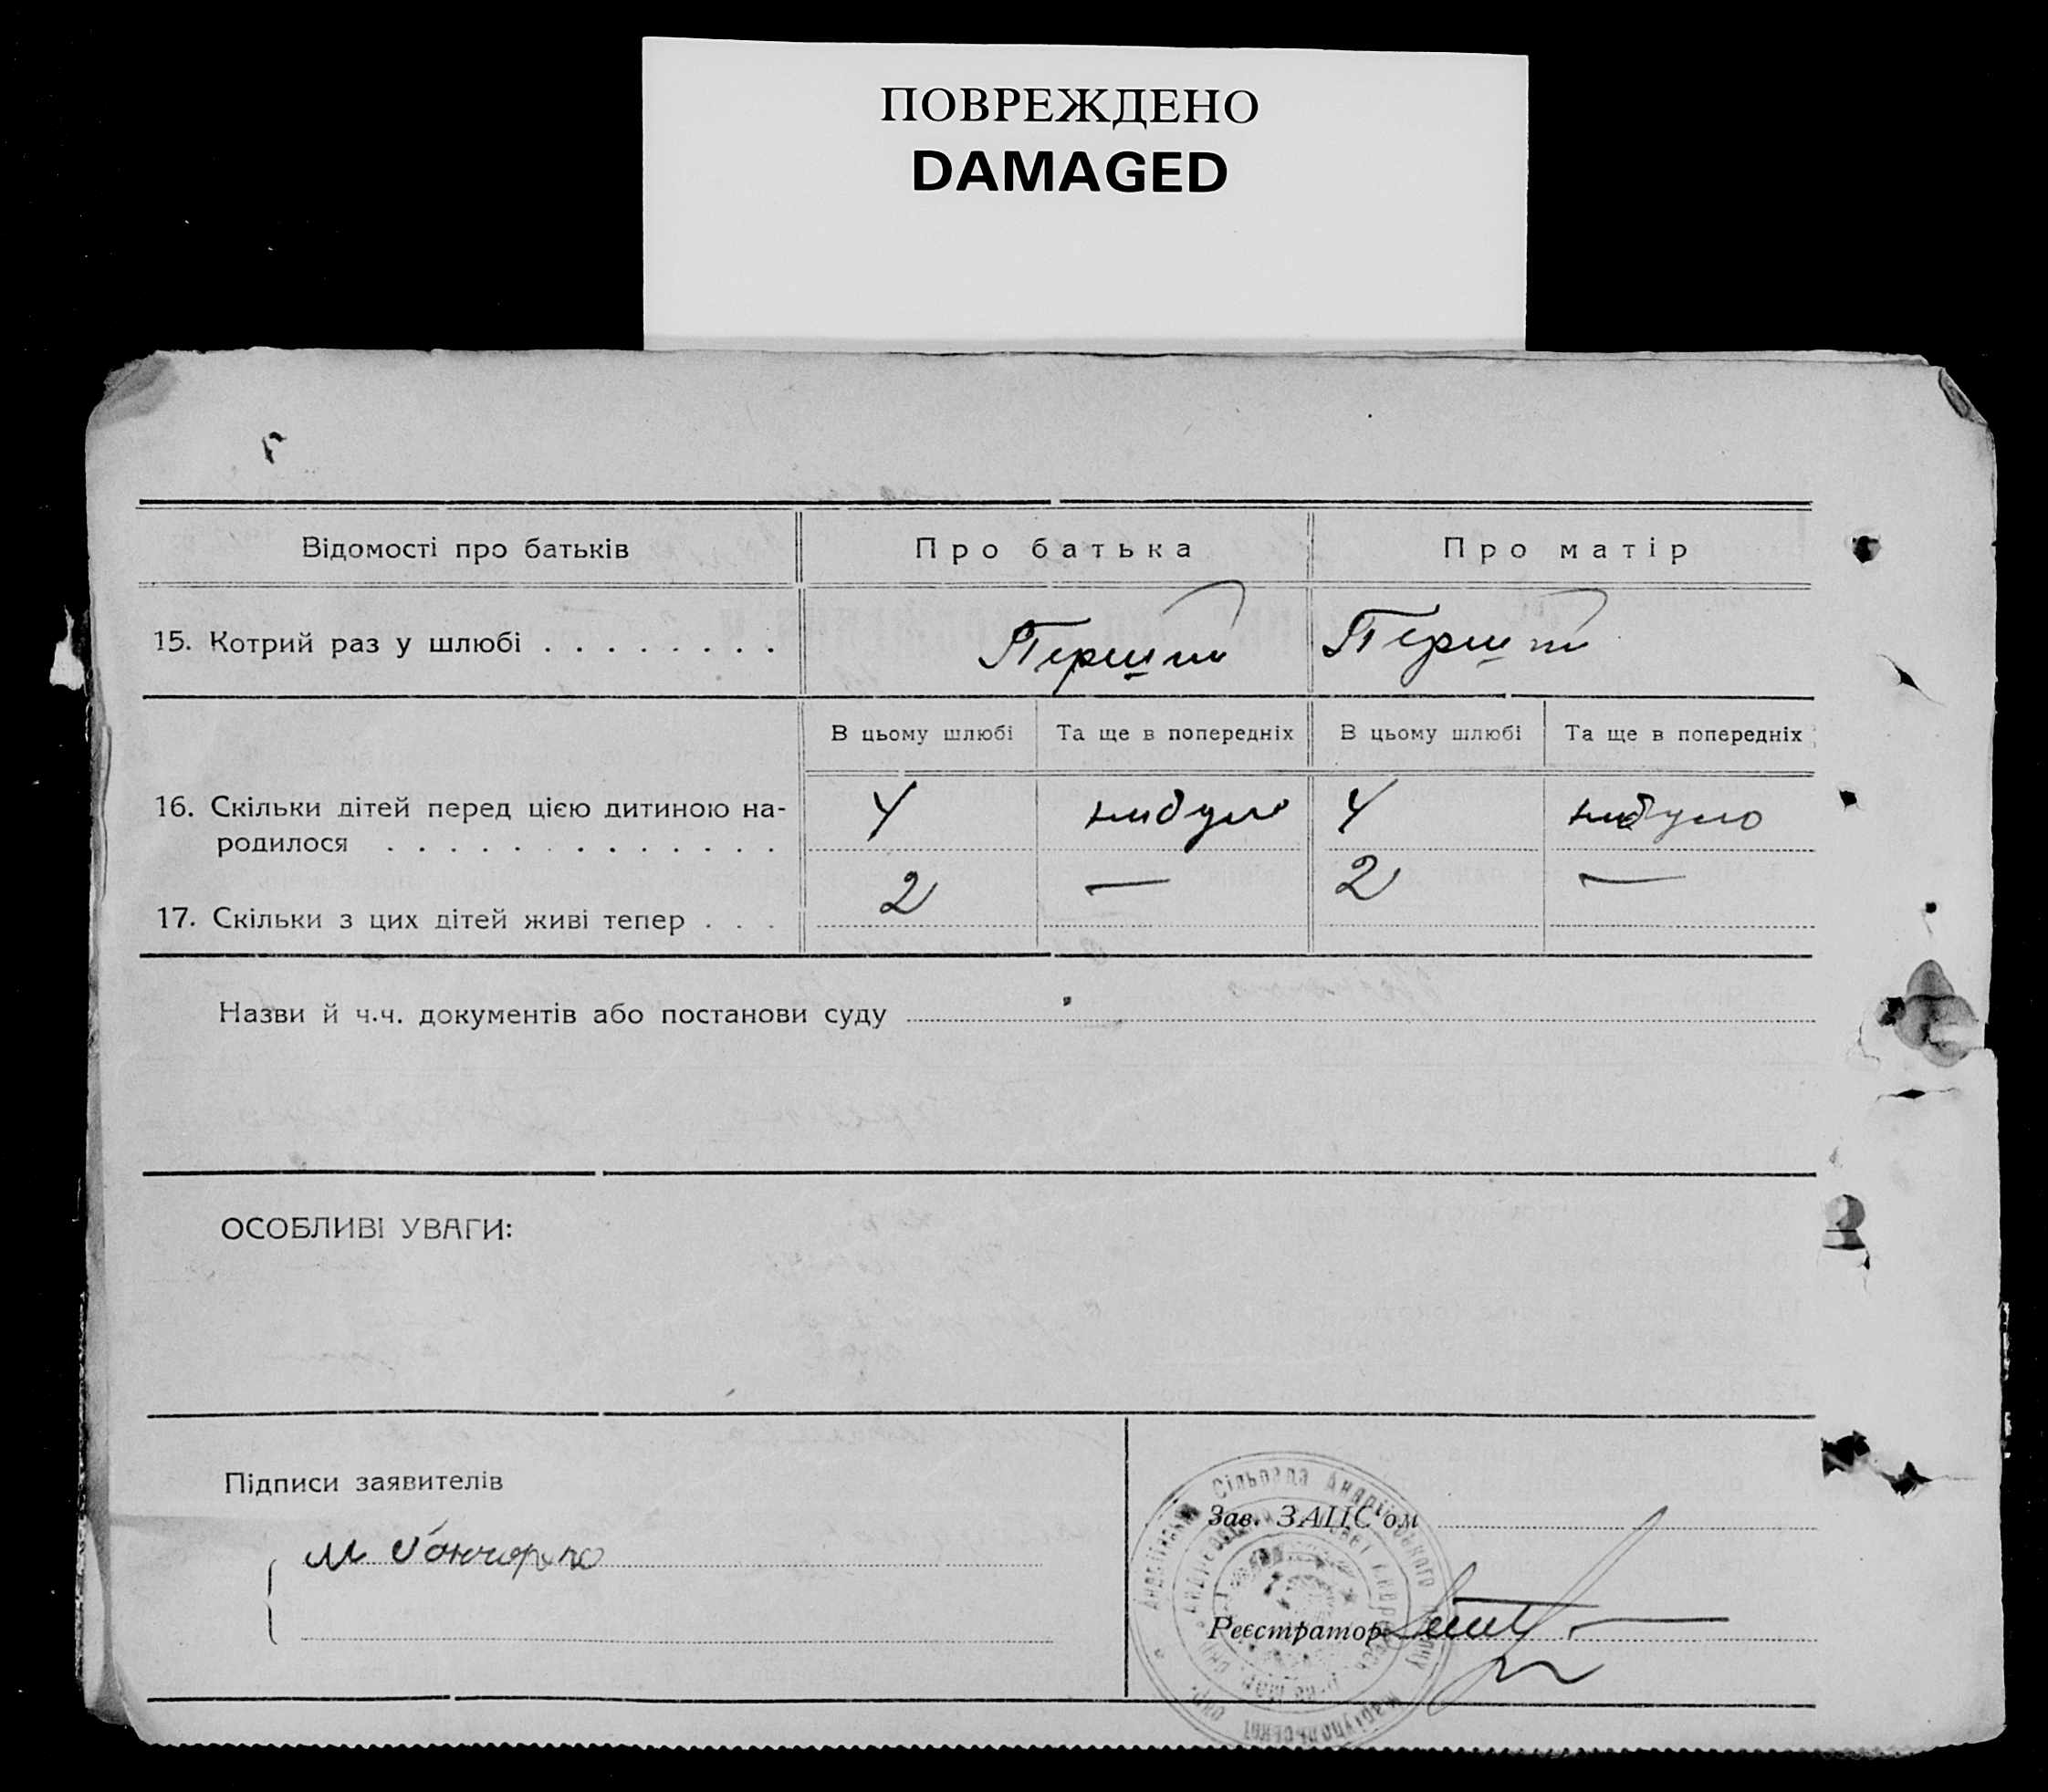 ПОВРЕЖДЕНО
DAMAGED
Відомості про батьків
Про батька
Про матір
15. Котрий раз у шлюбі . . . . . . . .
Перший
Перший
В цьому шлюбі
Та ще в попередніх
В цьому шлюбі
Та ще в попередніх
16. Скільки дітей перед цією дитиною на-
родилося . . . . . . . . . . . . . .
4
небуло
4
небуло
17. Скільки з цих дітей живі тепер . . .
2
—
2
—
Назви й ч.ч. документів або постанови суду
ОСОБЛИВІ УВАГИ:
Підписи заявителів
М Гончаренко
Зав. ЗАГС'ом
Реєстратор
Сільрада Андріївського району Маріупольської окр.